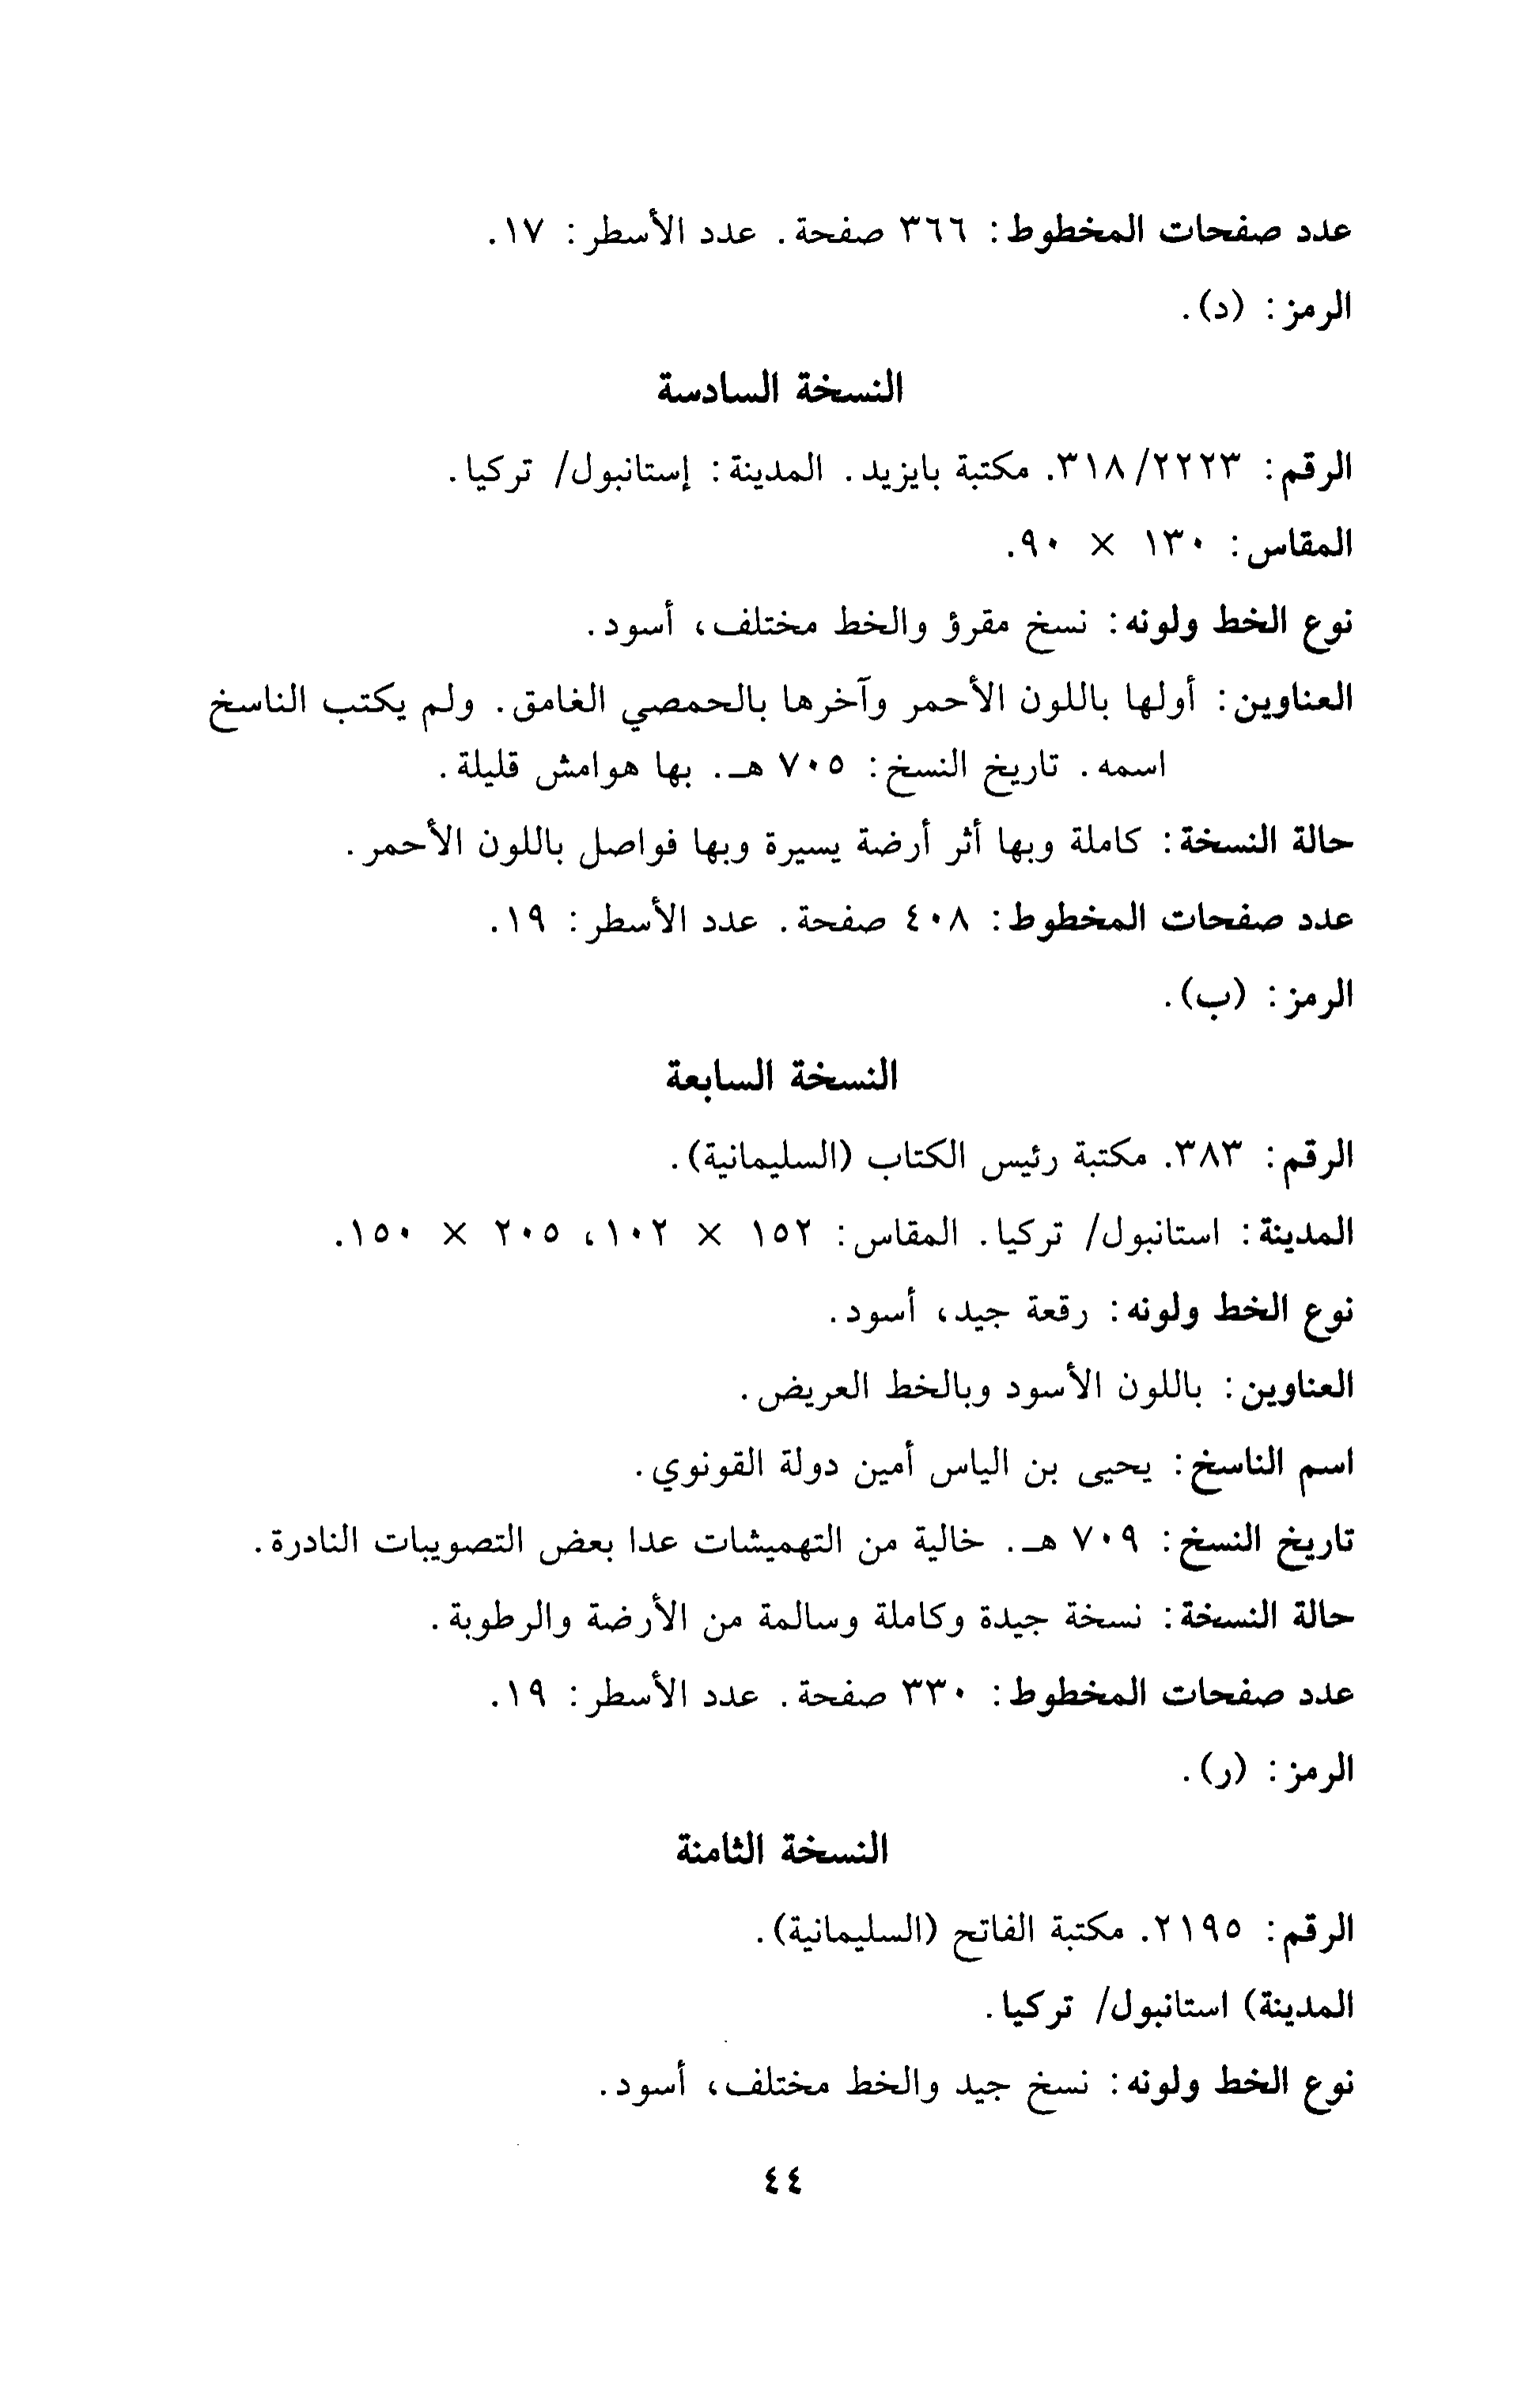 عدد صفحات المخطوط: ٣٦٦ صفحة. عدد الأسطر: ١٧.
الرمز: (د).
النسخة السادسة
الرقم: ٣١٨/٢٢٢٣. مكتبة بايزيد. المدينة: إستانبول/ تركيا.
المقاس: ١٣٠ × ٩٠.
نوع الخط ولونه: نسخ مقرؤ والخط مختلف، أسود.
العناوين: أولها باللون الأحمر وآخرها بالحمصي الغامق. ولم يكتب الناسخ
اسمه. تاريخ النسخ: ٧٠٥ هـ. بها هوامش قليلة.
حالة النسخة: كاملة وبها أثر أرضة يسيرة وبها فواصل باللون الأحمر.
عدد صفحات المخطوط: ٤٠٨ صفحة. عدد الأسطر: ١٩.
الرمز: (ب).
النسخة السابعة
الرقم: ٣٨٣. مكتبة رئيس الكتاب (السليمانية).
المدينة: استانبول/ تركيا. المقاس: ١٥٢ × ١٠٢، ٢٠٥ × ١٥٠.
نوع الخط ولونه: رقعة جيد، أسود.
العناوين: باللون الأسود وبالخط العريض.
اسم الناسخ: يحيى بن الياس أمين دولة القونوي.
تاريخ النسخ: ٧٠٩ هـ. خالية من التهميشات عدا بعض التصويبات النادرة.
حالة النسخة: نسخة جيدة وكاملة وسالمة من الأرضة والرطوبة.
عدد صفحات المخطوط: ٣٣٠ صفحة. عدد الأسطر: ١٩.
الرمز: (ر).
النسخة الثامنة
الرقم: ٢١٩٥. مكتبة الفاتح (السليمانية).
المدينة) استانبول/ تركيا.
نوع الخط ولونه: نسخ جيد والخط مختلف، أسود.
٤٤